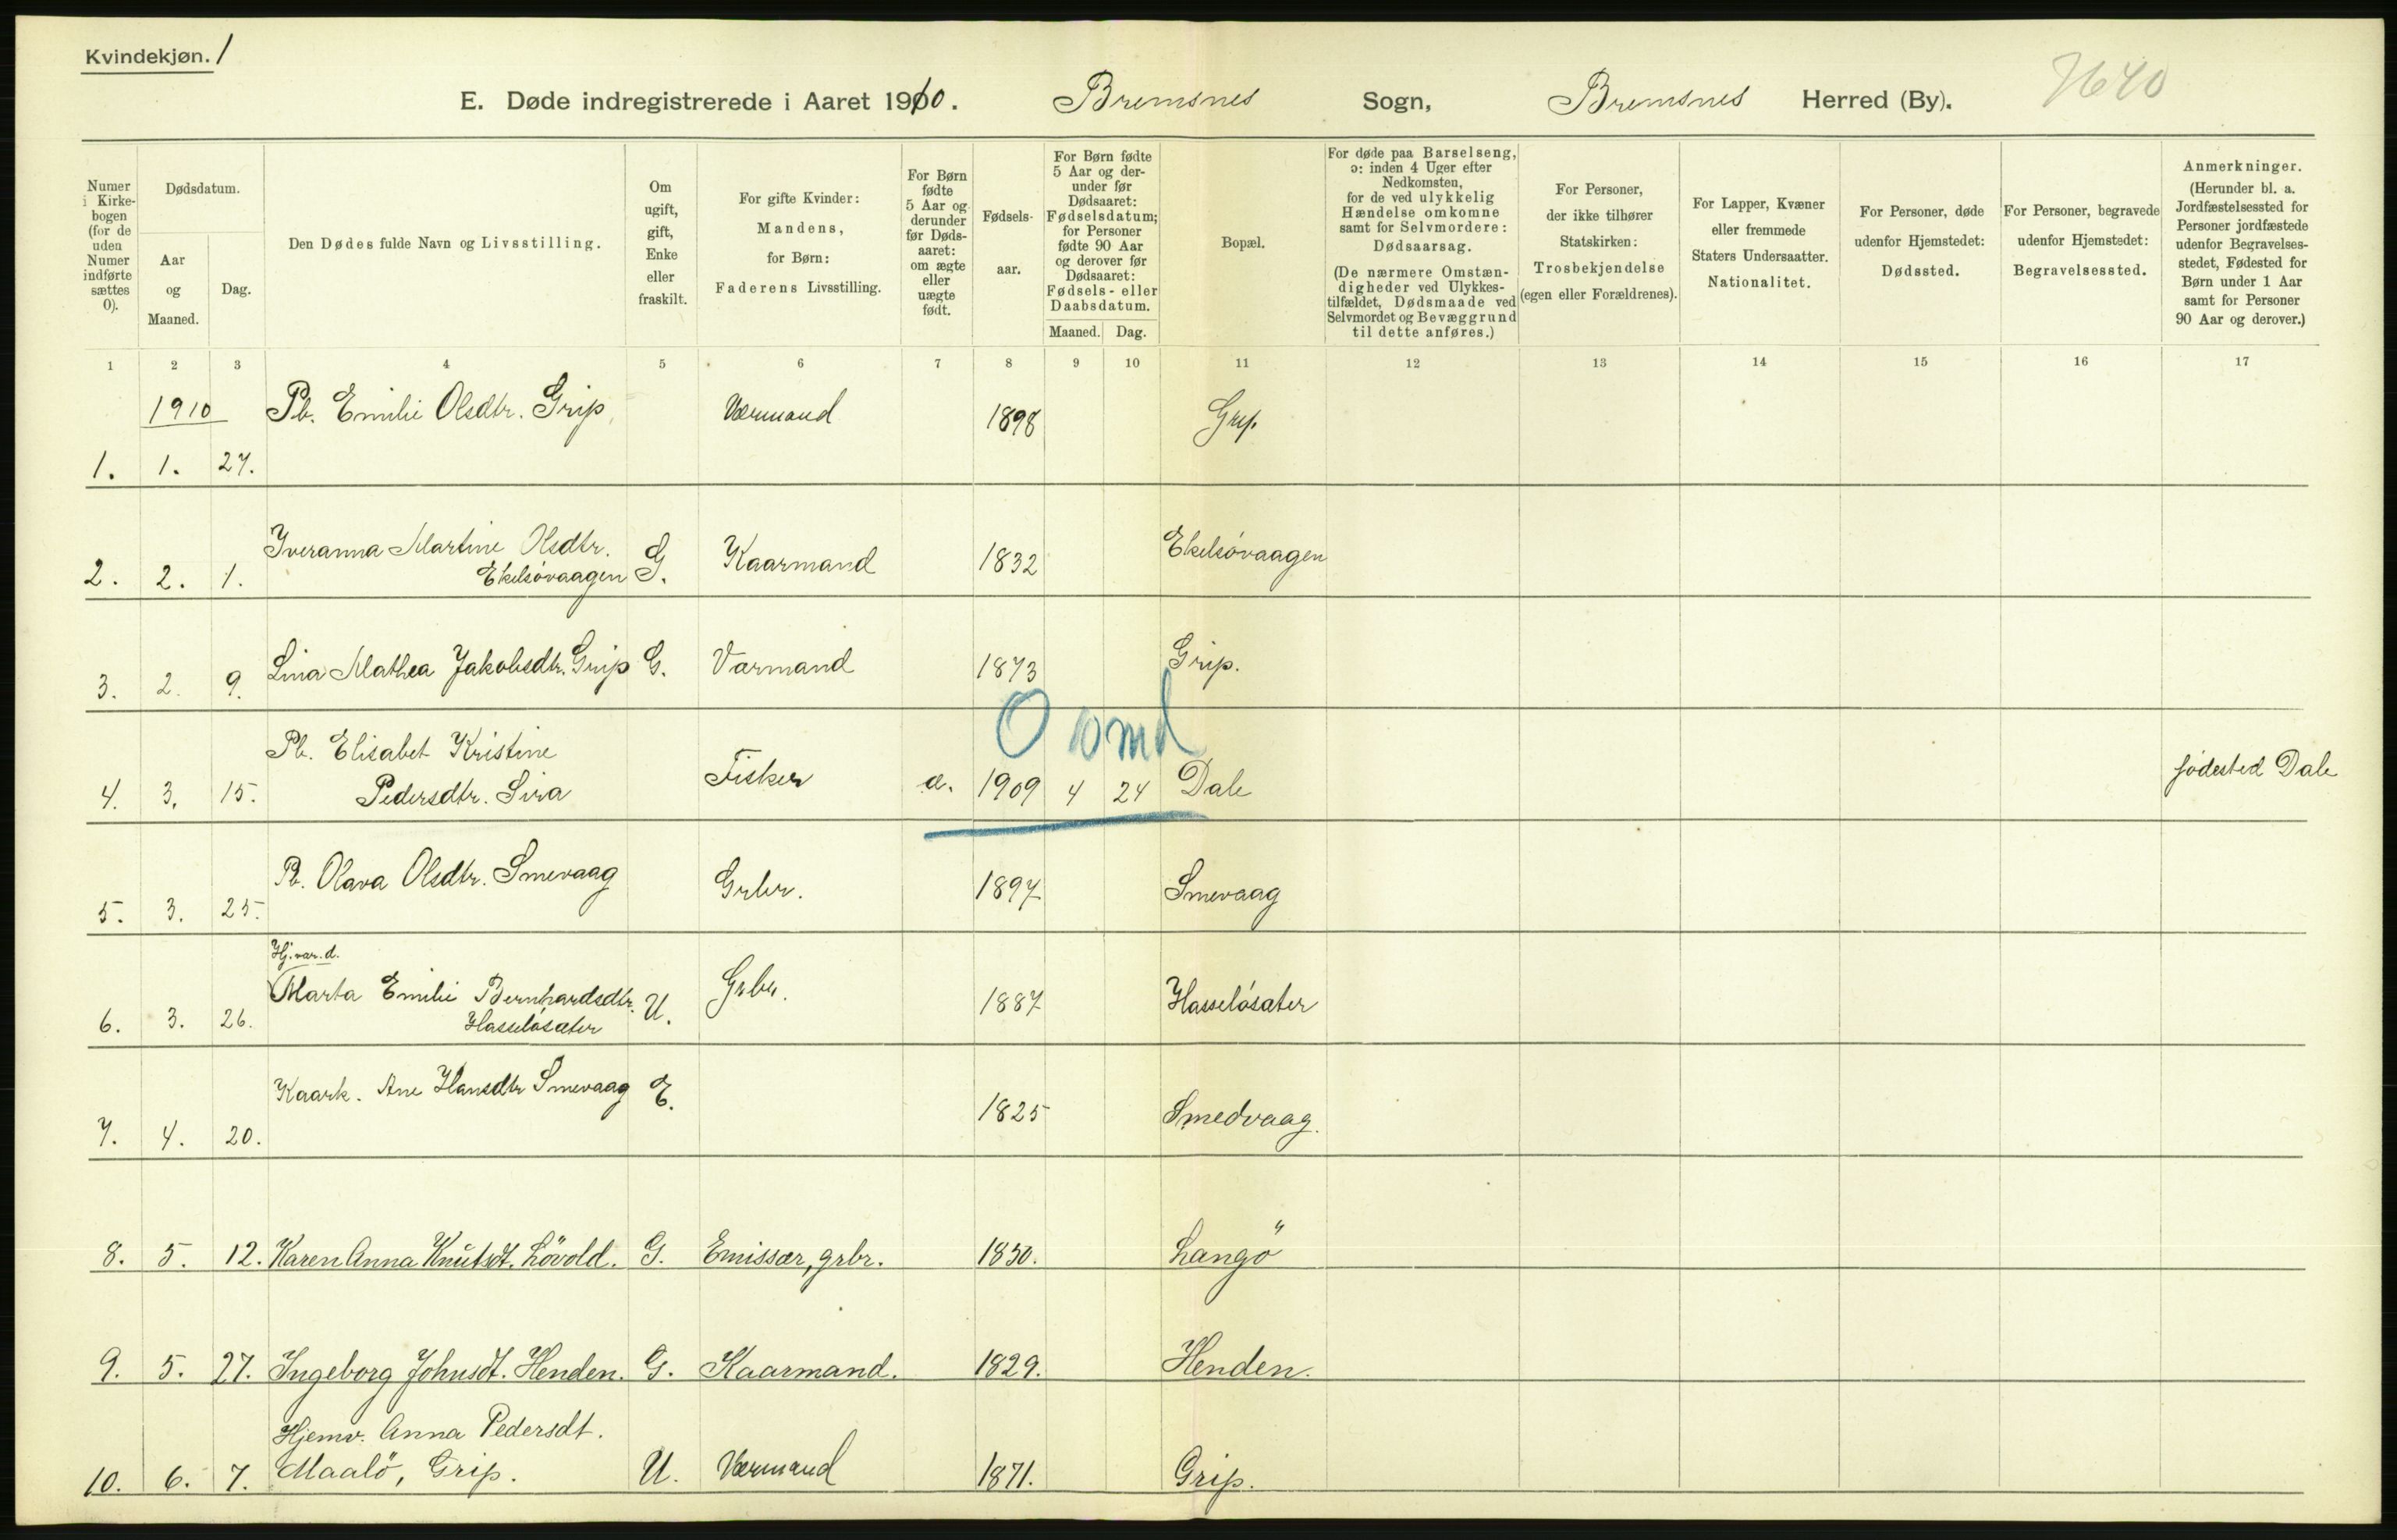 Kvindekjøn. 1
E. Døde indregistrerede i Aaret 1910. Bremsnes Sogn, Bremsnes Herred (By). 7640
Numer i Kirkebogen (for de uden Numer indførte sættes 0).
Dødsdatum.
Aar og Maaned.
Dag.
Den Dødes fulde Navn og Livsstilling.
Om ugift, gift, Enke eller fraskilt.
For gifte Kvinder: Mandens, for Børn: Faderens Livsstilling.
For Børn fødte 5 Aar og derunder før Dødsaaret: om ægte eller uægte født.
Fødselsaar.
For Børn fødte 5 Aar og derunder før Dødsaaret: Fødselsdatum; for Personer fødte 90 Aar og derover før Dødsaaret: Fødsels- eller Daabsdatum.
Maaned. Dag.
Bopæl.
For døde paa Barselseng, ɔ: inden 4 Uger efter Nedkomsten, for de ved ulykkelig Hændelse omkomne samt for Selvmordere: Dødsaarsag.
(De nærmere Omstændigheder ved Ulykkestilfældet, Dødsmaade ved Selvmordet og Bevæggrund til dette anføres.)
For Personer, der ikke tilhører Statskirken: Trosbekjendelse (egen eller Forældrenes).
For Lapper, Kvæner eller fremmede Staters Undersaatter. Nationalitet.
For Personer, døde udenfor Hjemstedet: Dødssted.
For Personer, begravede udenfor Hjemstedet: Begravelsessted.
Anmerkninger.
(Herunder bl. a. Jordfæstelsessted for Personer jordfæstede udenfor Begravelsesstedet, Fødested for Børn under 1 Aar samt for Personer 90 Aar og derover.)
1 2 3 4 5 6 7 8 9 10 11 12 13 14 15 16 17
1910 Pb. Emilie Olsdtr. Grip Værmand 1898 Grip
1. 1. 27.
Iveranna Martine Olsdtr.
2. 2. 1. Ekelsövaagen G. Kaarmand 1832 Ekelsövaagen
3. 2. 9. Lina Mathea Jakobsdtr. Grip G. Værmand 1873 Grip.
0 10 md
Pb. Elisabet Kristine
4. 3. 15. Pedersdtr. Sira Fisker æ. 1909 4 24 Dale födested Dale
5. 3. 25. Pb. Olava Olsdtr. Smevaag Grbr. 1897 Smevaag
Hj. var. d.
Marta Emilie Bernhardsdtr.
6. 3. 26. Hasselösæter U. Grbr. 1887 Hasselösæter
7. 4. 20. Kaark. Ane Hansdtr Smevaag E. 1825 Smedvaag.
8. 5. 12. Karen Anna Knutsdt. Lövold. G. Emissær, grbr. 1850. Langö
9. 5. 27. Ingeborg Johnsdt. Henden. G. Kaarmand. 1829. Henden.
Hjemv. Anna Pedersdt.
10. 6. 7. Maalö, Grip. U. Værmand 1871. Grip.